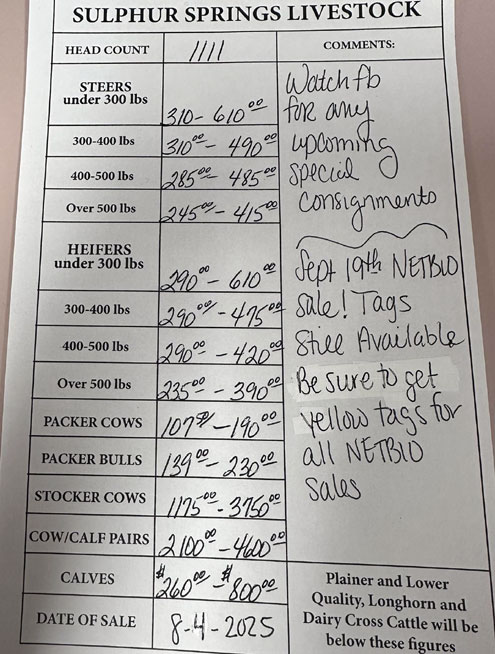 SULPHUR SPRINGS LIVESTOCK
HEAD COUNT 1111 COMMENTS:
STEERS
under 300 lbs 310 - 610.00
300-400 lbs 310.00 - 490.00
400-500 lbs 285.00 - 485.00
Over 500 lbs 245.00 - 415.00
HEIFERS
under 300 lbs 290.00 - 610.00
300-400 lbs 290.00 - 475.00
400-500 lbs 290.00 - 420.00
Over 500 lbs 235.00 - 390.00
PACKER COWS 107.50 - 190.00
PACKER BULLS 139.00 - 230.00
STOCKER COWS 1175.00 - 3750.00
COW/CALF PAIRS 2100.00 - 4600.00
CALVES $260.00 - $800.00
DATE OF SALE 8-4-2025
Watch fb
for any
upcoming
special
consignments
Sept 19th NETBIO
Sale! Tags
Still Available
Be sure to get
yellow tags for
all NETBIO
Sales
Plainer and Lower
Quality, Longhorn and
Dairy Cross Cattle will be
below these figures